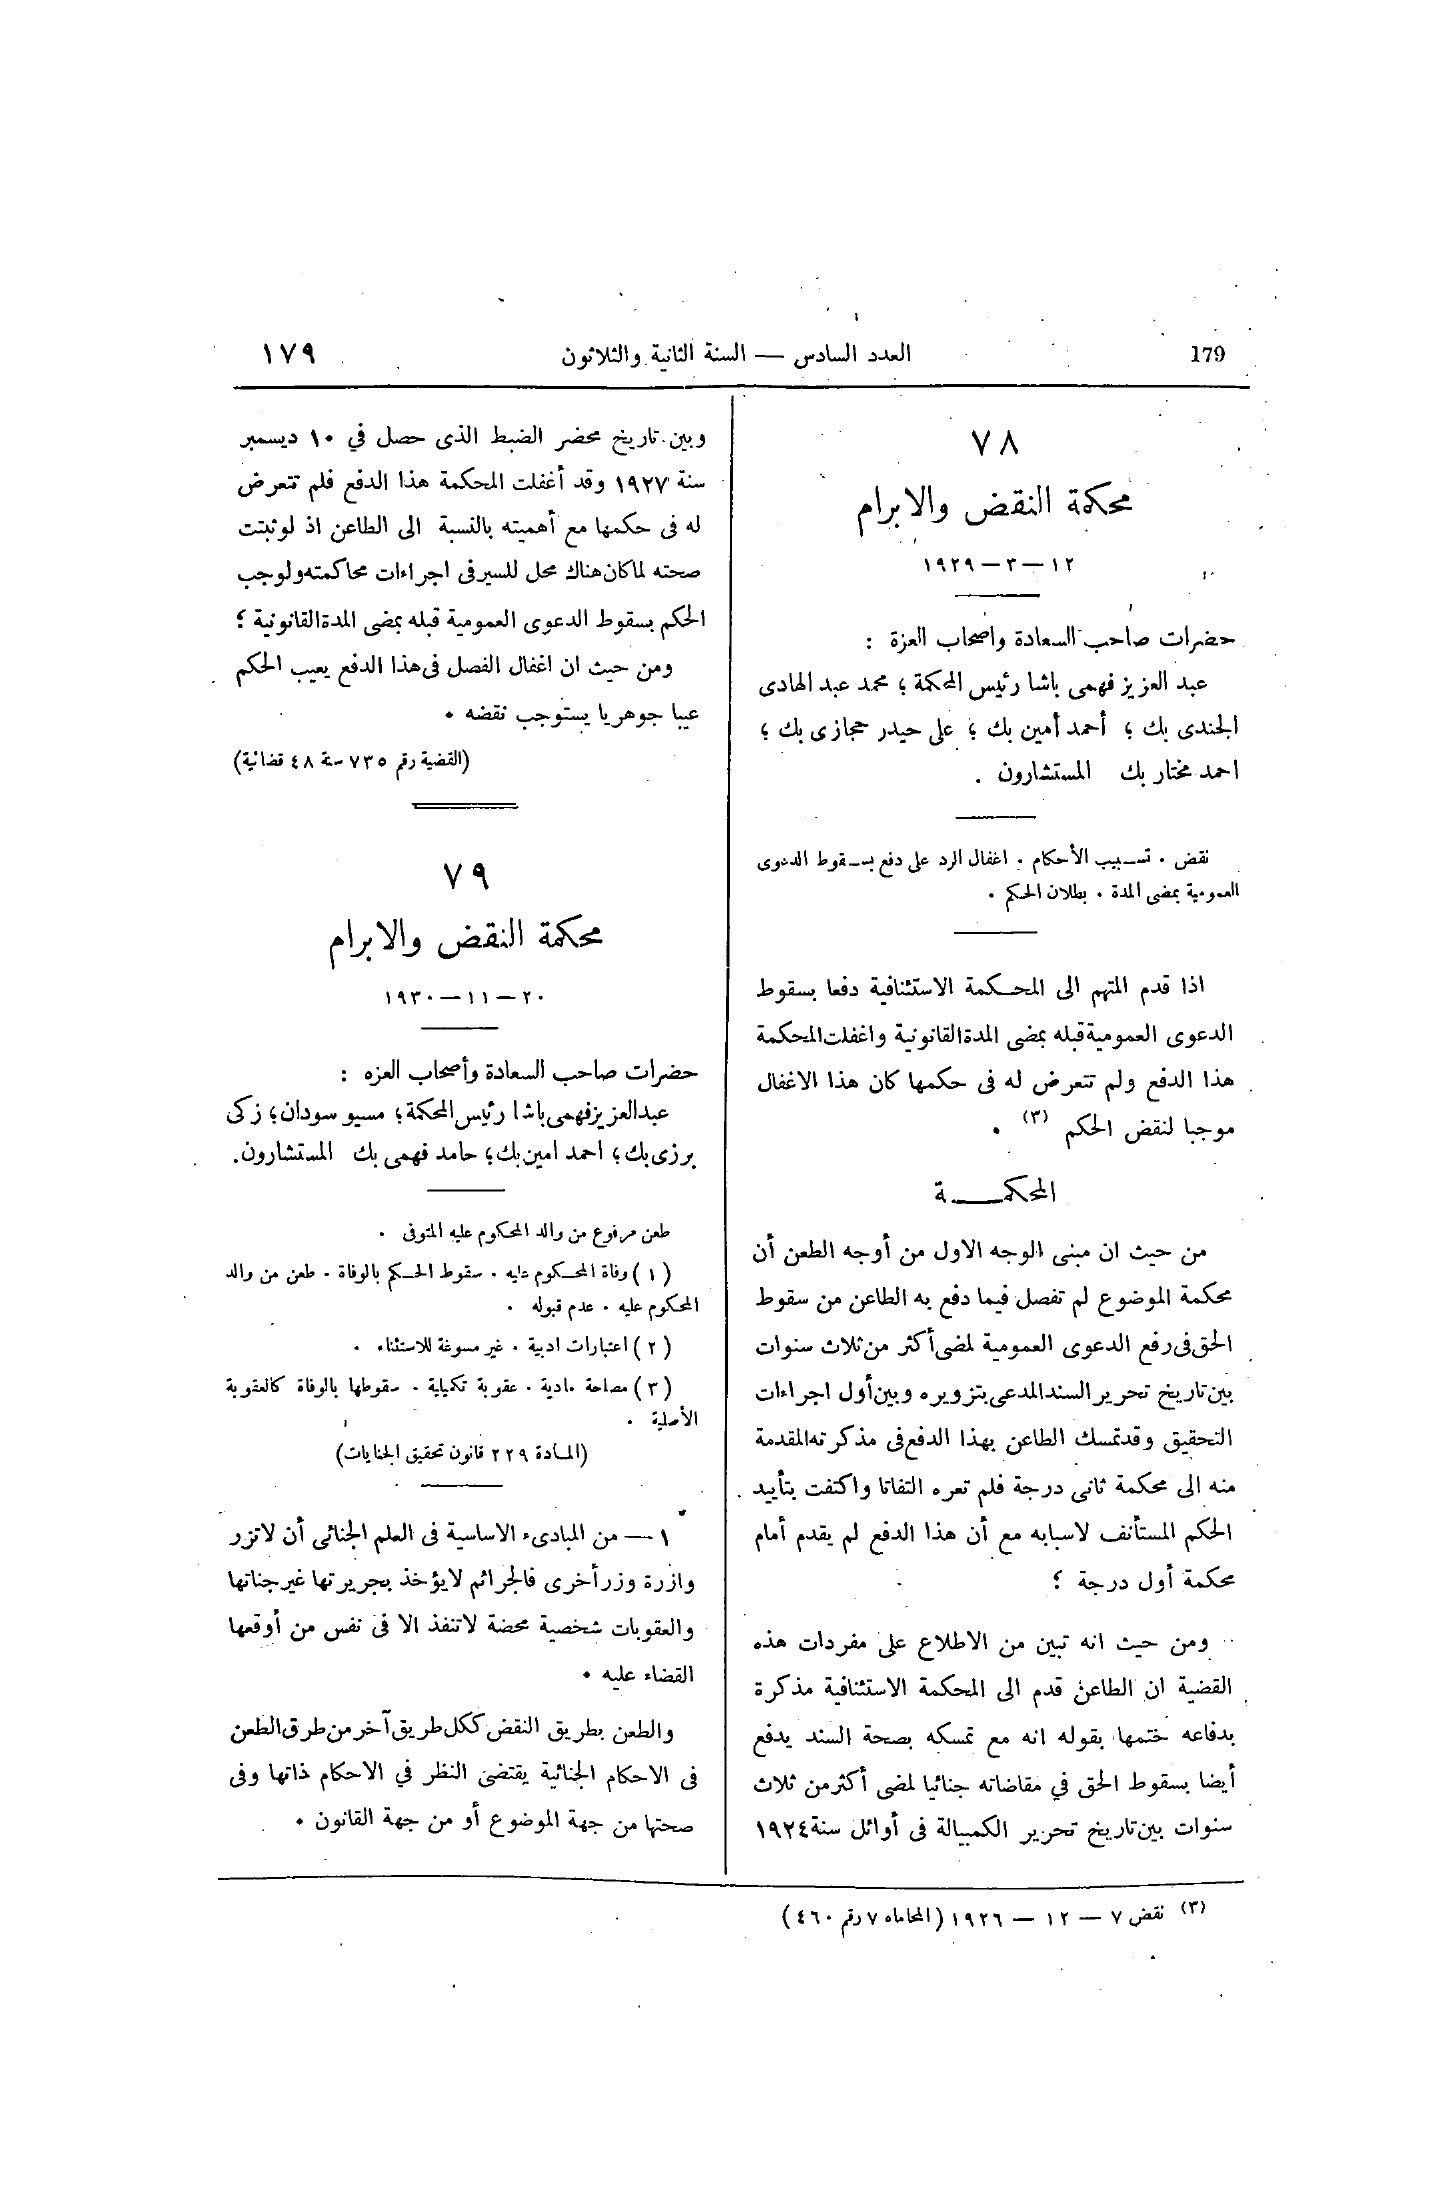 179 العدد السادس — السنة الثانية والثلاثون ١٧٩
٧٨
محكمة النقض والابرام
١٢ — ٣ — ١٩٢٩
حضرات صاحب السعادة واصحاب العزة :
عبد العزيز فهمى باشا رئيس المحكمة ؛ محمد عبد الهادى
الجندى بك ؛ أحمد أمين بك ؛ على حيدر حجازى بك ؛
احمد مختار بك المستشارون .
نقض . تسبيب الأحكام . اغفال الرد على دفع بسقوط الدعوى
العمومية بمضى المدة . بطلان الحكم .
اذا قدم المتهم الى المحكمة الاستئنافية دفعا بسقوط
الدعوى العمومية قبله بمضى المدة القانونية واغفلت المحكمة
هذا الدفع ولم تتعرض له فى حكمها كان هذا الاغفال
موجبا لنقض الحكم (٣) .
المحكمة
من حيث ان مبنى الوجه الاول من أوجه الطعن أن
محكمة الموضوع لم تفصل فيما دفع به الطاعن من سقوط
الحق فى رفع الدعوى العمومية لمضى أكثر من ثلاث سنوات
بين تاريخ تحرير السند المدعى بتزويره وبين أول اجراءات
التحقيق وقد تمسك الطاعن بهذا الدفع فى مذكرته المقدمة
منه الى محكمة ثانى درجة فلم تعره التفاتا واكتفت بتأييد
الحكم المستأنف لاسبابه مع أن هذا الدفع لم يقدم أمام
محكمة أول درجة ؛
ومن حيث انه تبين من الاطلاع على مفردات هذه
القضية ان الطاعن قدم الى المحكمة الاستئنافية مذكرة
بدفاعه ختمها بقوله انه مع تمسكه بصحة السند يدفع
أيضا بسقوط الحق في مقاضاته جنائيا لمضى أكثر من ثلاث
سنوات بين تاريخ تحرير الكمبيالة فى أوائل سنة ١٩٢٤
وبين تاريخ محضر الضبط الذى حصل في ١٠ ديسمبر
سنة ١٩٢٧ وقد أغفلت المحكمة هذا الدفع فلم تتعرض
له فى حكمها مع أهميته بالنسبة الى الطاعن اذ لو ثبتت
صحته لما كان هناك محل للسير فى اجراءات محاكمته ولوجب
الحكم بسقوط الدعوى العمومية قبله بمضى المدة القانونية ؛
ومن حيث ان اغفال الفصل فى هذا الدفع يعيب الحكم
عيبا جوهريا يستوجب نقضه .
(القضية رقم ٧٣٥ سنة ٤٨ قضائية)
٧٩
محكمة النقض والابرام
٢٠ — ١١ — ١٩٣٠
حضرات صاحب السعادة وأصحاب العزه :
عبد العزيز فهمى باشا رئيس المحكمة ؛ مسيو سودان ؛ زكى
برزى بك ؛ احمد امين بك ؛ حامد فهمى بك المستشارون.
طعن مرفوع من والد المحكوم عليه المتوفى .
(١) وفاة المحكوم عليه . سقوط الحكم بالوفاة . طعن من والد
المحكوم عليه . عدم قبوله .
(٢) اعتبارات ادبية . غير مسوغة للاستثناء .
(٣) مصلحة مادية . عقوبة تكميلية . سقوطها بالوفاة كالعقوبة
الأصلية .
(المادة ٢٢٩ قانون تحقيق الجنايات)
١ — من المبادىء الاساسية فى العلم الجنائى أن لا تزر
وازرة وزر أخرى فالجرائم لا يؤخذ بجريرتها غير جناتها
والعقوبات شخصية محضة لا تنفذ الا فى نفس من أوقعها
القضاء عليه .
والطعن بطريق النقض ككل طريق آخر من طرق الطعن
فى الاحكام الجنائية يقتضى النظر في الاحكام ذاتها وفى
صحتها من جهة الموضوع أو من جهة القانون .
(٣) نقض ٧ — ١٢ — ١٩٢٦ (المحاماه ٧ رقم ٤٦٠)